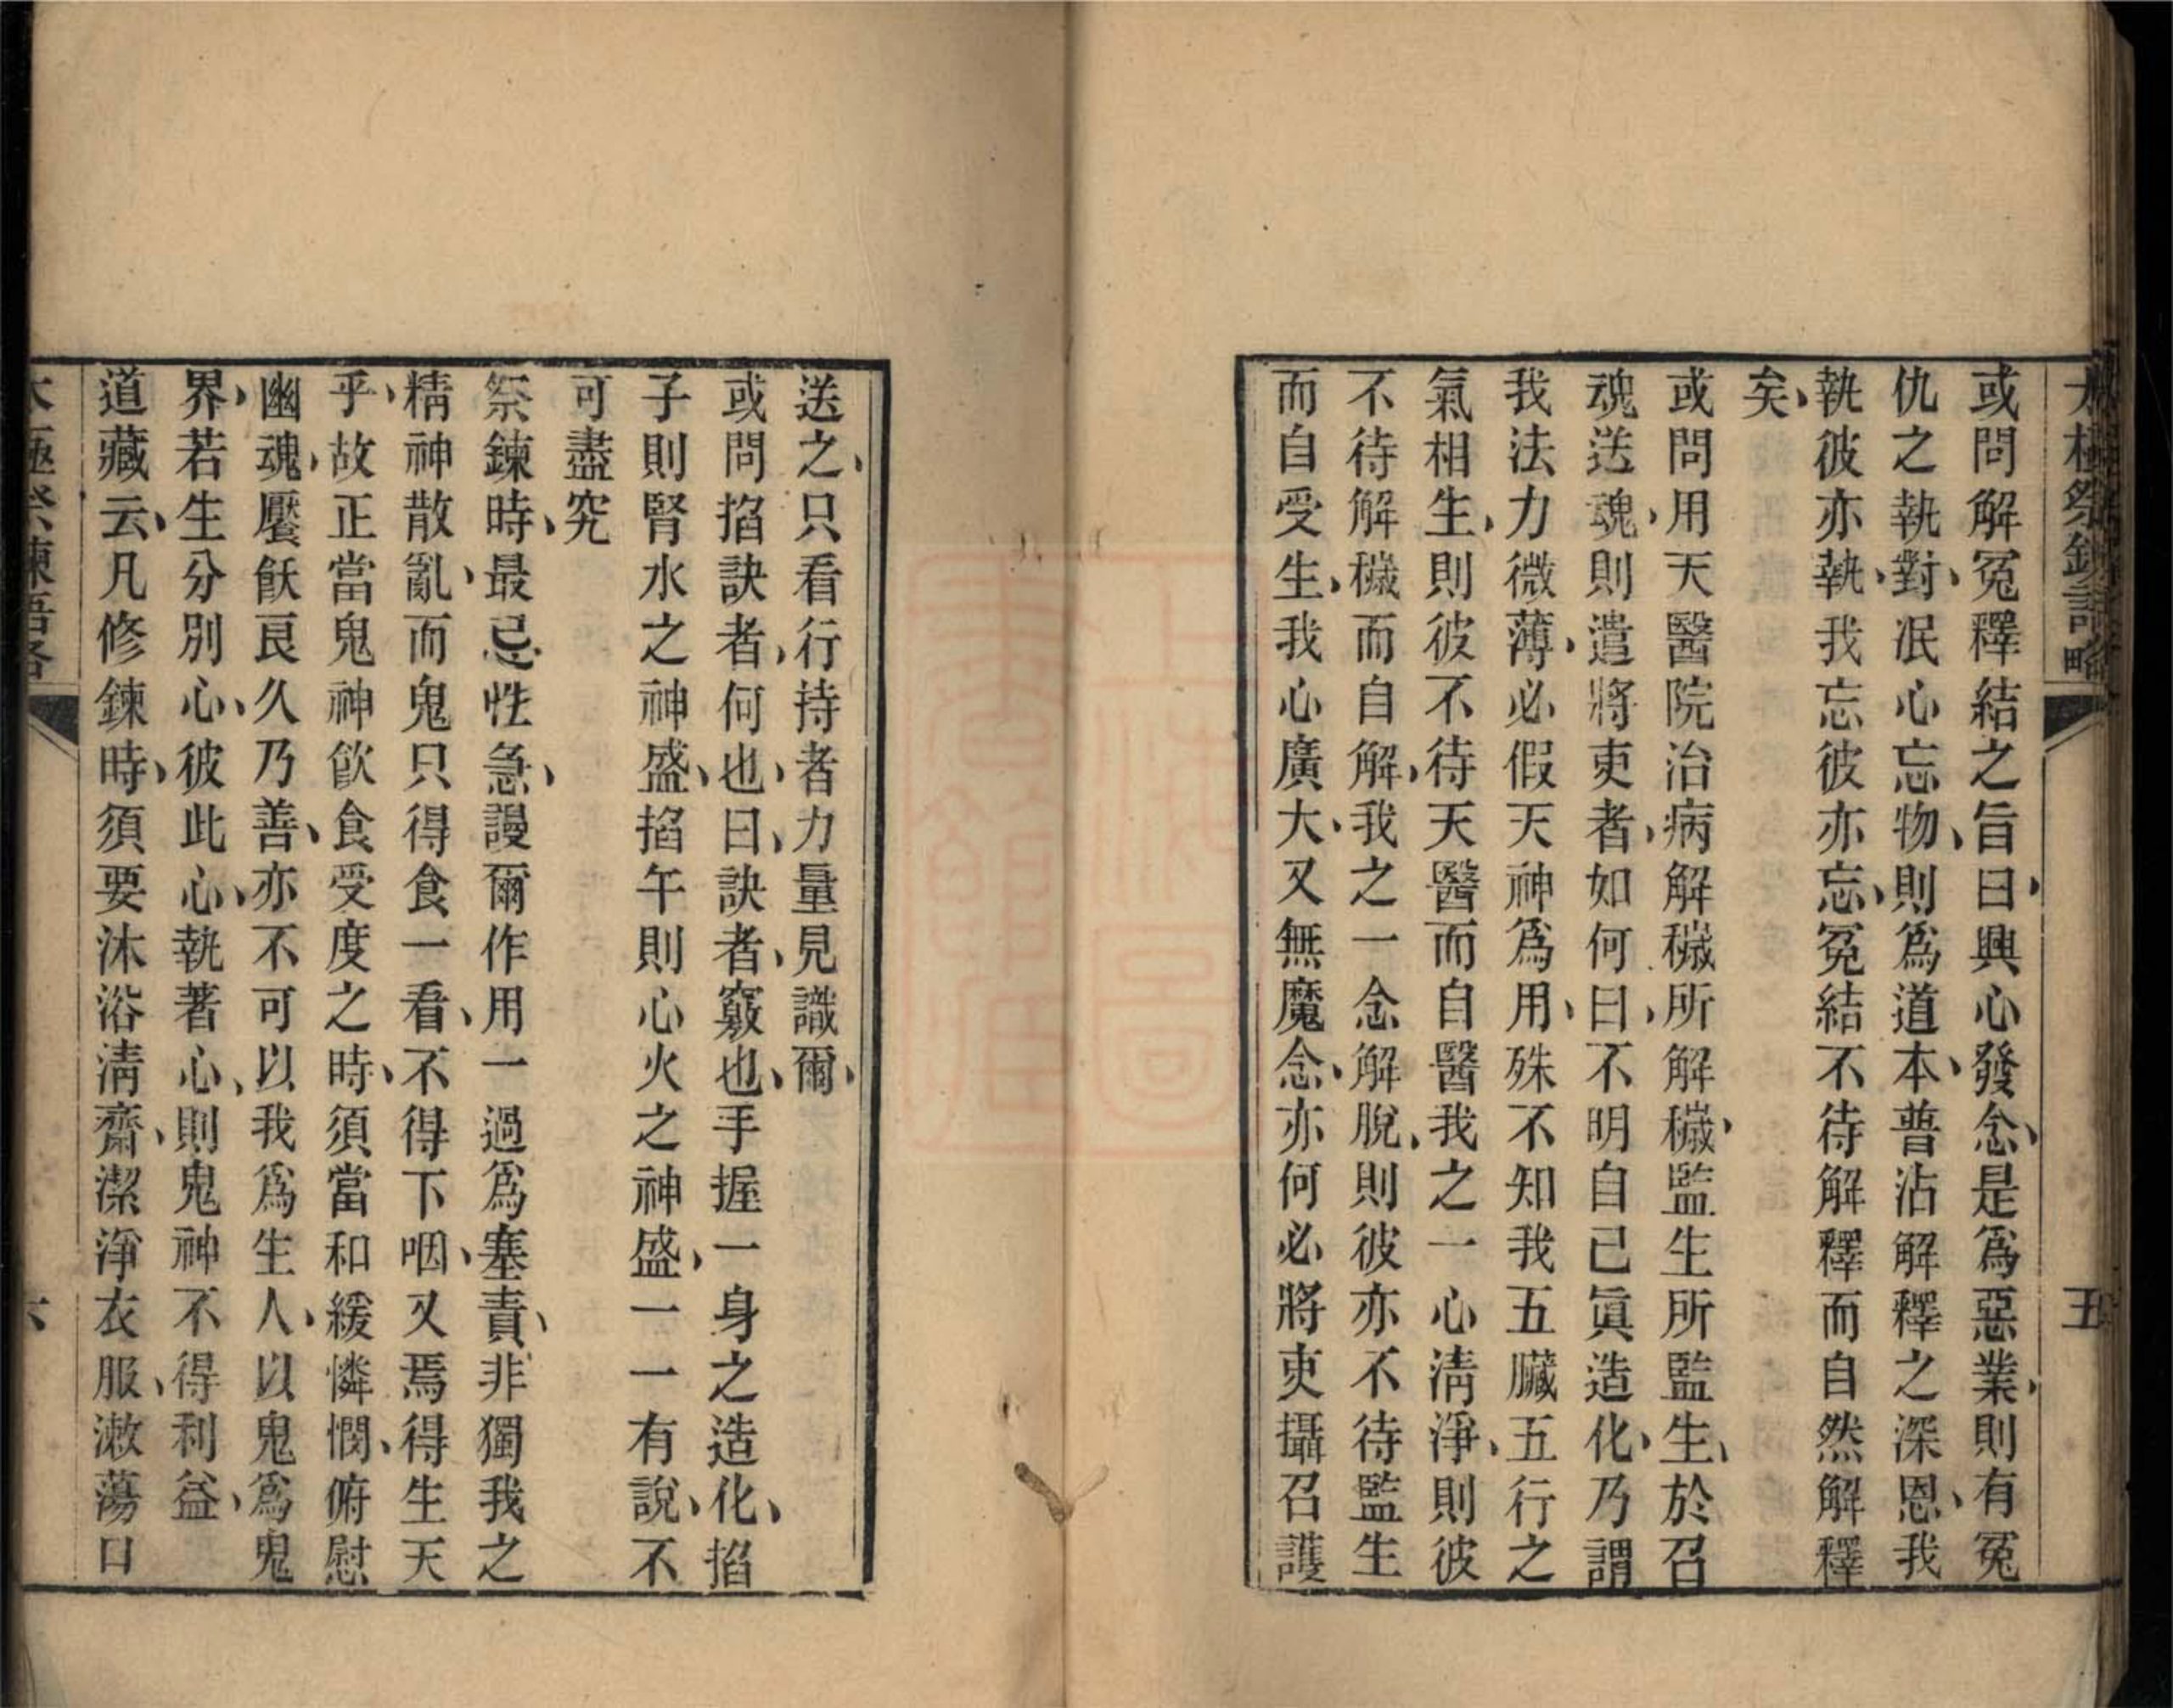 太極祭鍊語略
五
或問解冤釋結之旨曰、興心發念、是爲惡業、則有冤
仇之執對、泯心忘物、則爲道本、普沾解釋之深恩、我
執彼亦執、我忘彼亦忘、冤結不待解釋而自然解釋
矣、
或問用天醫院治病解穢所解穢、監生所監生、於召
魂送魂、則遣將吏者、如何曰、不明自己眞造化、乃謂
我法力微薄、必假天神爲用、殊不知我五臟五行之
氣相生、則彼不待天醫而自醫我之一心淸淨、則彼
不待解穢而自解、我之一念解脫、則彼亦不待監生
而自受生、我心廣大、又無魔念、亦何必將吏攝召護
送之、只看行持者力量見識爾、
或問掐訣者、何也、曰、訣者、竅也、手握一身之造化、掐
子則腎水之神盛、掐午則心火之神盛、一一有說、不
可盡究
祭鍊時、最忌性急、謾爾作用一過爲塞責、非獨我之
精神散亂、而鬼只得食一看、不得下咽、又焉得生天
乎、故正當鬼神飮食受度之時、須當和緩憐憫、俯慰
幽魂、饜飫良久乃善、亦不可以我爲生人、以鬼爲鬼
界、若生分別心、彼此心、執著心、則鬼神不得利益、
道藏云、凡修鍊時、須要沐浴淸齋、潔淨衣服、漱蕩口
太極祭鍊語略
六
上海圖書館藏